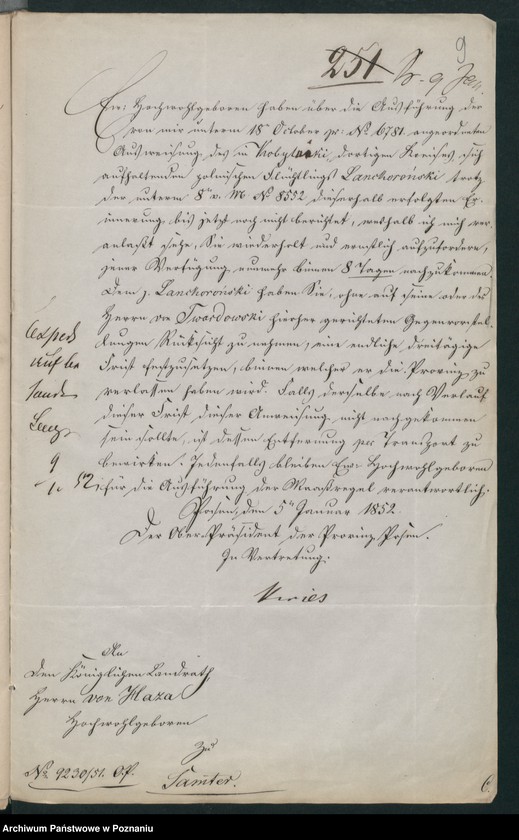 9
251 Pr. 9 Jan.
Ew: Hochwohlgeboren haben über die Ausführung der
von mir unterm 18n October pr: No 6781. angeordneten
Ausweisung des in Kobylniki, dortigen Kreises, sich
aufhaltenden polnischen Flüchtlings Lanchoroński trotz
der unterm 8n v. M. No 8552 dieserhalb erfolgten Er-
innerung, bis jetzt noch nicht berichtet, weshalb ich mich ver-
anlaßt sehe, Sie wiederholt und ernstlich aufzufordern,
jener Verfügung nunmehr binnen 8 Tagen nachzukommen.
Dem p. Lanchoroński haben Sie, ohne auf seine oder des
Herrn von Twardowski hierher gerichteten Gegenvorstel-
lungen Rücksicht zu nehmen, eine endliche dreitägige
Frist festzusetzen, binnen welcher er die Provinz zu
verlassen haben wird. Falls derselbe nach Verlauf
dieser Frist dieser Anweisung nicht nachgekommen
sein sollte, ist dessen Entfernung per Transport zu
bewirken. Jedenfalls bleiben Ew: Hochwohlgeboren
für die Ausführung der Maaßregel verantwortlich.
Posen, den 5n Januar 1852.
Der Ober-Präsident der Provinz Posen.
In Vertretung.
9
1. 52
An
den Königlichen Landrath
Herrn von Haza
Hochwohlgeboren
zu
Samter.
No 9230/51. O.P.
6.
Archiwum Państwowe w Poznaniu